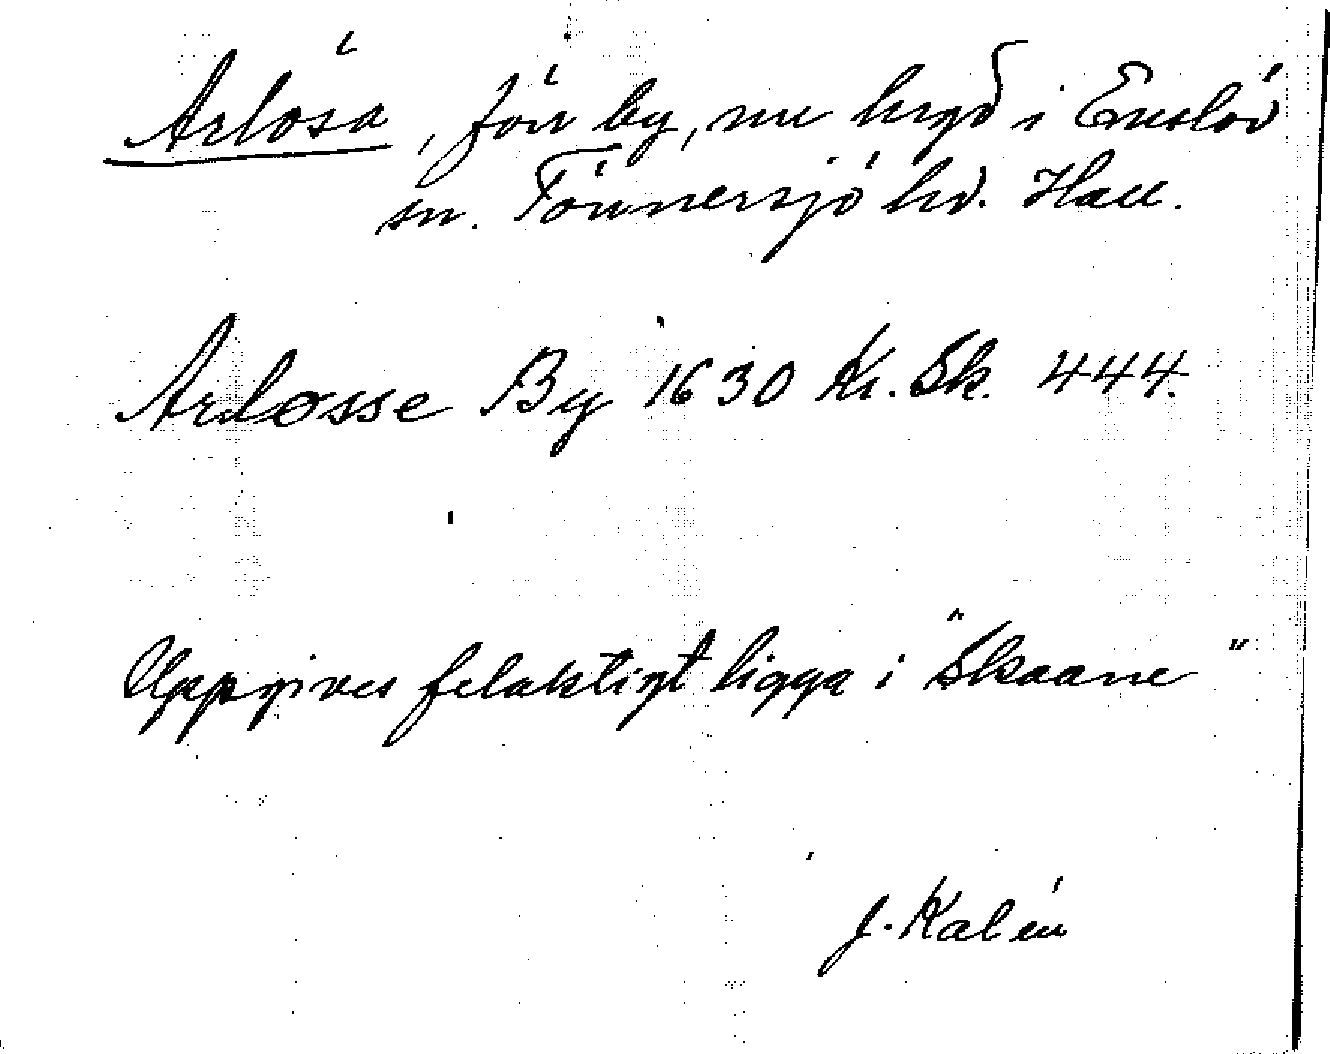 Arlösa, förr by, nu bygd i Enslöv
sn. Tönnersjö hd. Hall.
Arløsse By 1630 Kr. Sk. 444.
Uppgives felaktigt ligga i "Skaane"
J. Kalén